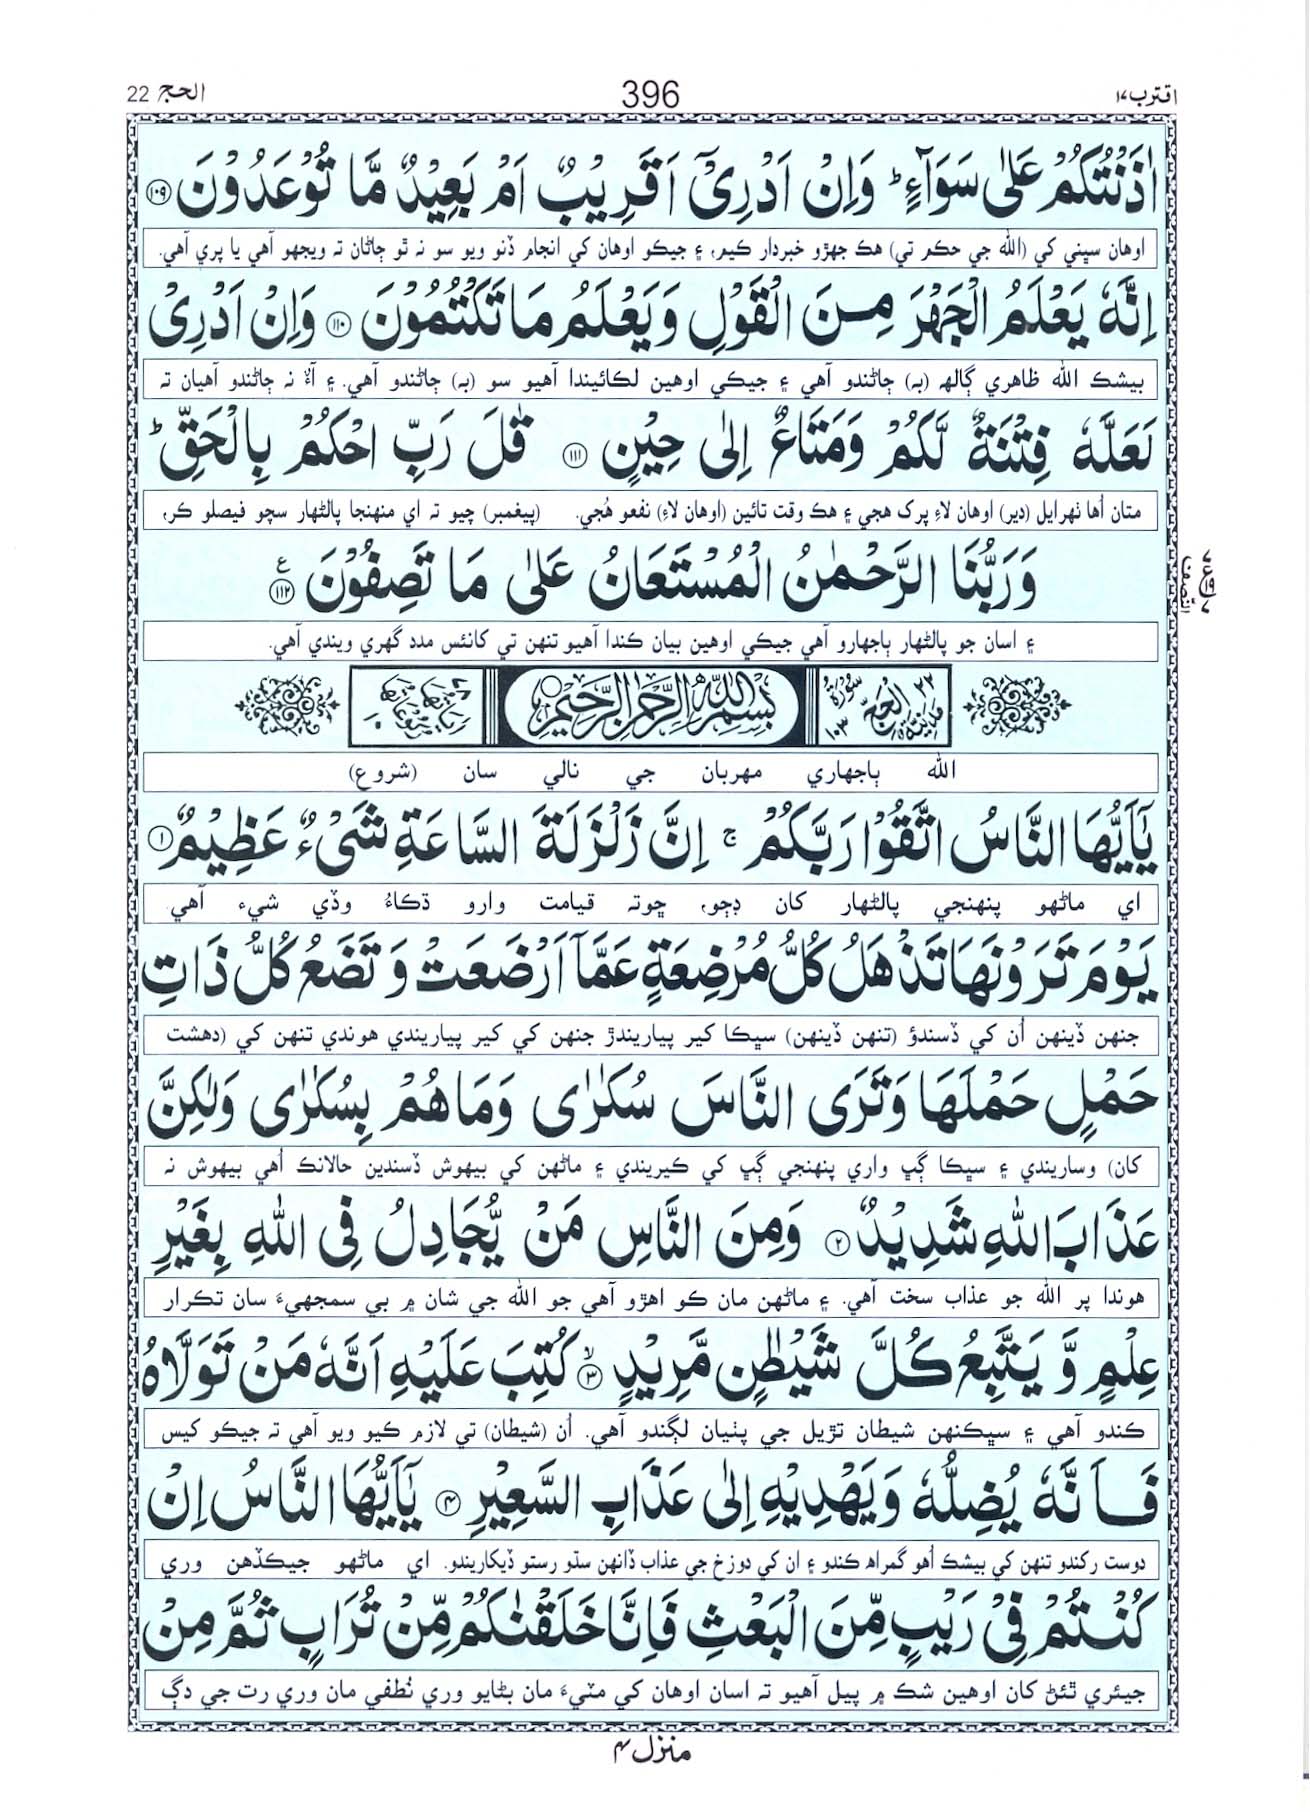 اقترب ١٧ 396 الحج 22
اٰذَنْتُكُمْ عَلٰى سَوَآءٍ ؕ وَاِنْ اَدْرِيْۤ اَقَرِيْبٌ اَمْ بَعِيْدٌ مَّا تُوْعَدُوْنَ ۝١٠٩
اوهان سڀني کي (الله جي حڪم تي) هڪ جهڙو خبردار ڪيم، ۽ جيڪو اوهان کي انجام ڏنو ويو سو نہ ٿو ڄاڻان تہ ويجهو آهي يا پري آهي.
اِنَّهٗ يَعْلَمُ الْجَهْرَ مِنَ الْقَوْلِ وَيَعْلَمُ مَا تَكْتُمُوْنَ ۝١١٠ وَاِنْ اَدْرِيْ
بيشڪ الله ظاهري ڳالھہ (بہ) ڄاڻندو آهي ۽ جيڪي اوهين لڪائيندا آهيو سو (بہ) ڄاڻندو آهي. ۽ آءٌ نہ ڄاڻندو آهيان تہ
لَعَلَّهٗ فِتْنَةٌ لَّكُمْ وَمَتَاعٌ اِلٰى حِيْنٍ ۝١١١ قٰلَ رَبِّ احْكُمْ بِالْحَقِّ ؕ
متان اُها ٺهرايل (دير) اوهان لاءِ پرک هجي ۽ هڪ وقت تائين (اوهان لاءِ) نفعو هُجي. (پيغمبر) چيو تہ اي منهنجا پالڻهار سچو فيصلو ڪر،
وَرَبُّنَا الرَّحْمٰنُ الْمُسْتَعَانُ عَلٰى مَا تَصِفُوْنَ ۝١١٢ ع
۽ اسان جو پالڻهار ٻاجهارو آهي جيڪي اوهين بيان ڪندا آهيو تنهن تي کانئس مدد گهري ويندي آهي.
سُوْرَةُ الْحَجِّ مَدَنِيَّةٌ ٢٢ ١٠٣ بِسْمِ اللّٰهِ الرَّحْمٰنِ الرَّحِيْمِ اٰيَاتُهَا ٧٨ رُكُوْعَاتُهَا ١٠
الله ٻاجهاري مهربان جي نالي سان (شروع)
يٰۤاَيُّهَا النَّاسُ اتَّقُوْا رَبَّكُمْ ۚ اِنَّ زَلْزَلَةَ السَّاعَةِ شَيْءٌ عَظِيْمٌ ۝١
اي ماڻهو پنهنجي پالڻهار کان ڊڄو، ڇوتہ قيامت وارو ڌڪاءُ وڏي شيء آهي.
يَوْمَ تَرَوْنَهَا تَذْهَلُ كُلُّ مُرْضِعَةٍ عَمَّاۤ اَرْضَعَتْ وَتَضَعُ كُلُّ ذَاتِ
جنهن ڏينهن اُن کي ڏسندؤ (تنهن ڏينهن) سڀڪا کير پياريندڙ جنهن کي کير پياريندي هوندي تنهن کي (دهشت
حَمْلٍ حَمْلَهَا وَتَرَى النَّاسَ سُكٰرٰى وَمَا هُمْ بِسُكٰرٰى وَلٰكِنَّ
کان) وساريندي ۽ سڀڪا ڳڀ واري پنهنجي ڳڀ کي ڪيريندي ۽ ماڻهن کي بيهوش ڏسندين حالانڪ اُهي بيهوش نہ
عَذَابَ اللّٰهِ شَدِيْدٌ ۝٢ وَمِنَ النَّاسِ مَنْ يُّجَادِلُ فِي اللّٰهِ بِغَيْرِ
هوندا پر الله جو عذاب سخت آهي. ۽ ماڻهن مان ڪو اهڙو آهي جو الله جي شان ۾ بي سمجهيءَ سان تڪرار
عِلْمٍ وَّيَتَّبِعُ كُلَّ شَيْطٰنٍ مَّرِيْدٍ ۝٣ۙ كُتِبَ عَلَيْهِ اَنَّهٗ مَنْ تَوَلَّاهُ
ڪندو آهي ۽ سڀڪنهن شيطان تڙيل جي پٺيان لڳندو آهي. اُن (شيطان) تي لازم ڪيو ويو آهي تہ جيڪو کيس
فَاَنَّهٗ يُضِلُّهٗ وَيَهْدِيْهِ اِلٰى عَذَابِ السَّعِيْرِ ۝٤ يٰۤاَيُّهَا النَّاسُ اِنْ
دوست رکندو تنهن کي بيشڪ اُهو گمراہ ڪندو ۽ ان کي دوزخ جي عذاب ڏانهن سڌو رستو ڏيکاريندو. اي ماڻهو جيڪڏهن وري
كُنْتُمْ فِيْ رَيْبٍ مِّنَ الْبَعْثِ فَاِنَّا خَلَقْنٰكُمْ مِّنْ تُرَابٍ ثُمَّ مِنْ
جيئري ٿئڻ کان اوهين شڪ ۾ پيل آهيو تہ اسان اوهان کي مٽيءَ مان بڻايو وري نُطفي مان وري رت جي دڳ
منزل ٤